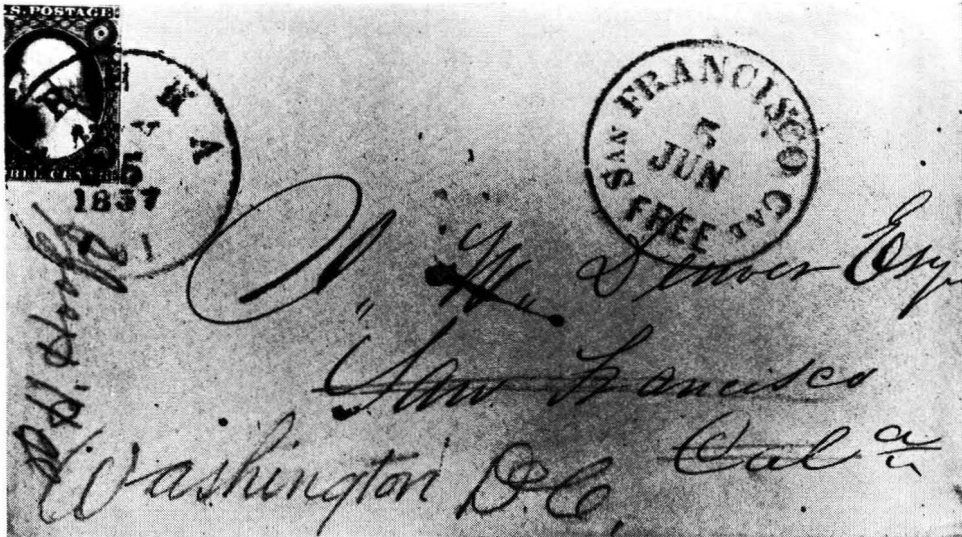 S. POSTAGE
5
1857
SAN FRANCISCO CAL
5
JUN
FREE
W. Denver Esq.
San Francisco
Cal a
Washington D.C.